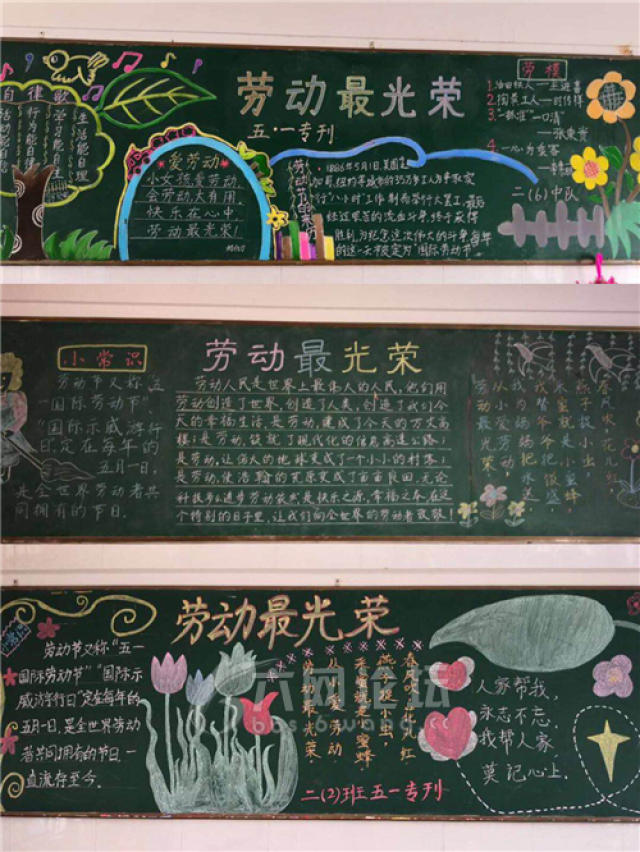 自律歌
生活能自理
学习能自主
行为能自律
劳动最光荣
五·一专刊
爱劳动
小女孩爱劳动,
会劳动,大有用.
快乐在心中,
劳动最光荣!
1886年5月1日,美国芝
加哥、纽约等城市的35万多工人为争取实
行"八小时"工作制而举行大罢工,最后
经过艰苦的流血斗争,终于获得
胜利,为纪念这次伟大的斗争,每年
的这一天被定为"国际劳动节".
劳模
1.油田铁人—王进喜
2.掏粪工人—时传祥
3."一抓准""一口清"
—张秉贵
4.一心为乘客
二(6)中队
小常识
劳动节又称"五一
国际劳动节"、
"国际示威游行
日",定在每年的
五月一日,
是全世界劳动者共
同拥有的节日.
劳动最光荣
劳动人民是世界上最伟大的人民,他们用
劳动创造了世界,创造了人类,创造了我们今
天的幸福生活,是劳动,建成了今天的万丈高
楼;是劳动,筑就了现代化的信息高速公路;
是劳动,让偌大的地球变成了一个小小的村落;
是劳动,使浩瀚的荒原变成了亩亩良田,无论
科技多么进步,劳动依然是快乐之源,幸福之本,在这
个特别的日子里,让我们向全世界的劳动者致敬!
春风吹,花儿红,
燕子捉小虫
来蜜就是小蜜蜂
我替爷爷把饭盛
我为妈妈把水送
从小爱劳动
劳动最光荣,
劳动最光荣
劳动节又称"五一
国际劳动节""国际示
威游行日"定在每年的
五月一日,是全世界劳动
者共同拥有的节日.一
直流存至今.
春风吹花儿红
燕子捉小虫,
采蜜就是小蜜蜂
从小爱劳动
劳动最光荣.
人家帮我,
永志不忘,
我帮人家
莫记心上.
二(2)班五一专刊
六网论坛
bbs.6wang.cc